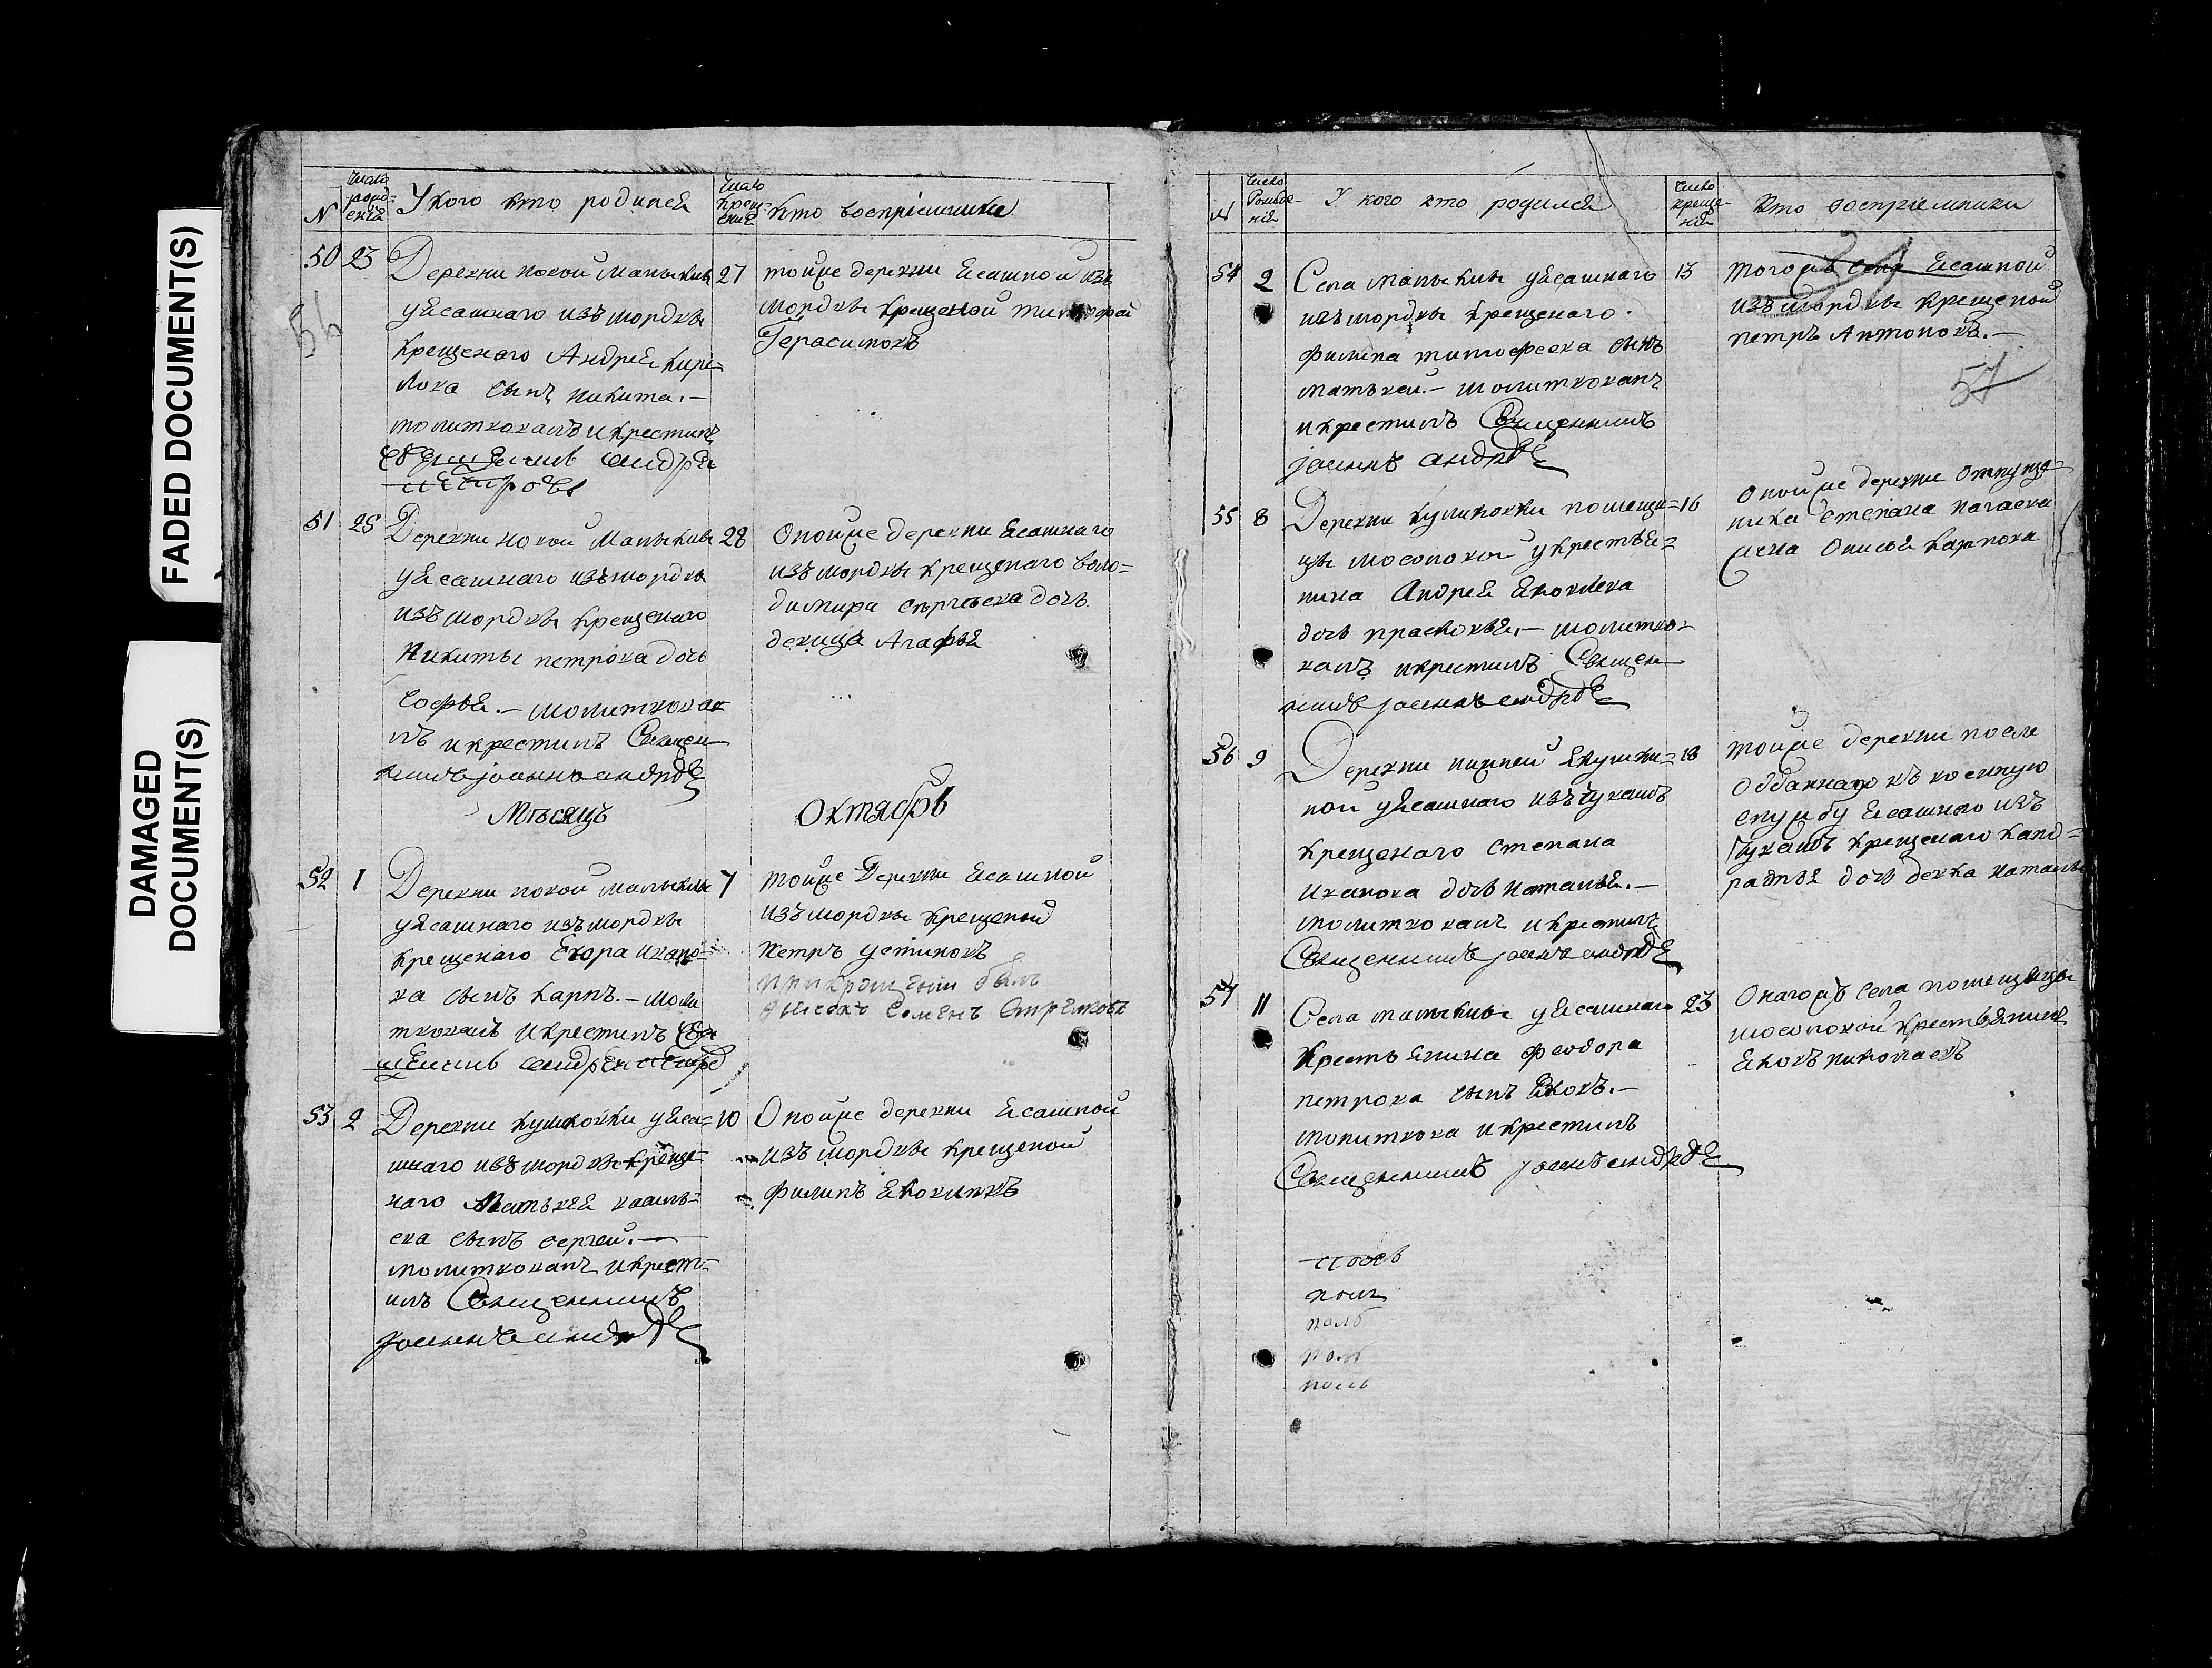 FADED DOCUMENT(S)
DAMAGED
DOCUMENT(S)
N
число
рожд-
ения
У кого кто родился
число
крещ-
ения
кто восприемники
50 23 Деревни новой Малыклы 27
уясашнаго изъ мордвы
крещенаго Андрея Кире-
лова сынъ никита.-
молитвовалъ и крестилъ
тойже деревни Ясашной изъ
мордвы крещеной тимофей
Герасимовъ
56
51 25 Деревни новой Малыклы 28
уясашнаго изъ мордвы
изъ мордвы крещенаго
Никиты петрова дочь
софья.- молитвовал
лъ и крестилъ Священ
никъ иоаннъ андрѣе
Оной же деревни Ясашнаго
изъ мордвы крещенаго Воло-
димира сергѣева дочь
девица Агафья
Мѣсяцъ Октябрь
52 1 Деревни новой малыклы 7
уясашнаго изъ мордвы
крещенаго Егора ивано-
ва сынъ карпъ.- моли
твовалъ и крестилъ Свя
щенникъ андрей петро
тойже Деревни Ясашной
изъ мордвы крещеной
петръ устиновъ
при крещении былъ
дьячокъ Семенъ
53 2 Деревни куликовки уяса- 10
шнаго изъ мордвы креще-
наго Матвея василь-
ева сынъ сергей.-
молитвовалъ и крест-
илъ Священникъ
иоаннъ андрѣе
Оной же деревни Ясашной
изъ мордвы крещеной
филипъ
N
число
Рожде-
ния
У кого кто родился
число
креще-
ния
кто восприемники
54 2 Села малыклы уясашнаго 13
изъ мордвы крещенаго.
филипа тимофеева сынъ
матвей.- молитвовалъ
и крестилъ Священникъ
иоаннъ андрѣе
тогожъ села Ясашной
изъ мордвы крещеной
петръ Антоновъ.-
57
55 8 Деревни куликовки помещи- 16
цы мосоловой укрестья-
нина Андрея Яковлева
дочь прасковья.- молитво-
валъ и крестилъ Священ
никъ иоаннъ андрѣе
Оной же деревни
степана
56 9 Деревни нижней Якушки- 18
ной уясашнаго изъ чувашъ
крещенаго степана
иванова дочь наталья.-
молитвовалъ и крестилъ
Священникъ иоаннъ андрѣе
тойже деревни после
отданнаго въ военную
службу Ясашнаго изъ
чувашъ крещенаго канд-
ратья дочь девка наталья
57 11 Села малыклы уясашнаго 23
крестьянина феодора
петрова сынъ Яковъ.-
молитвова и крестилъ
Священникъ иоаннъ андрѣе
Онагожъ села помещицы
мосоловой крестьянинъ
Яковъ николаевъ